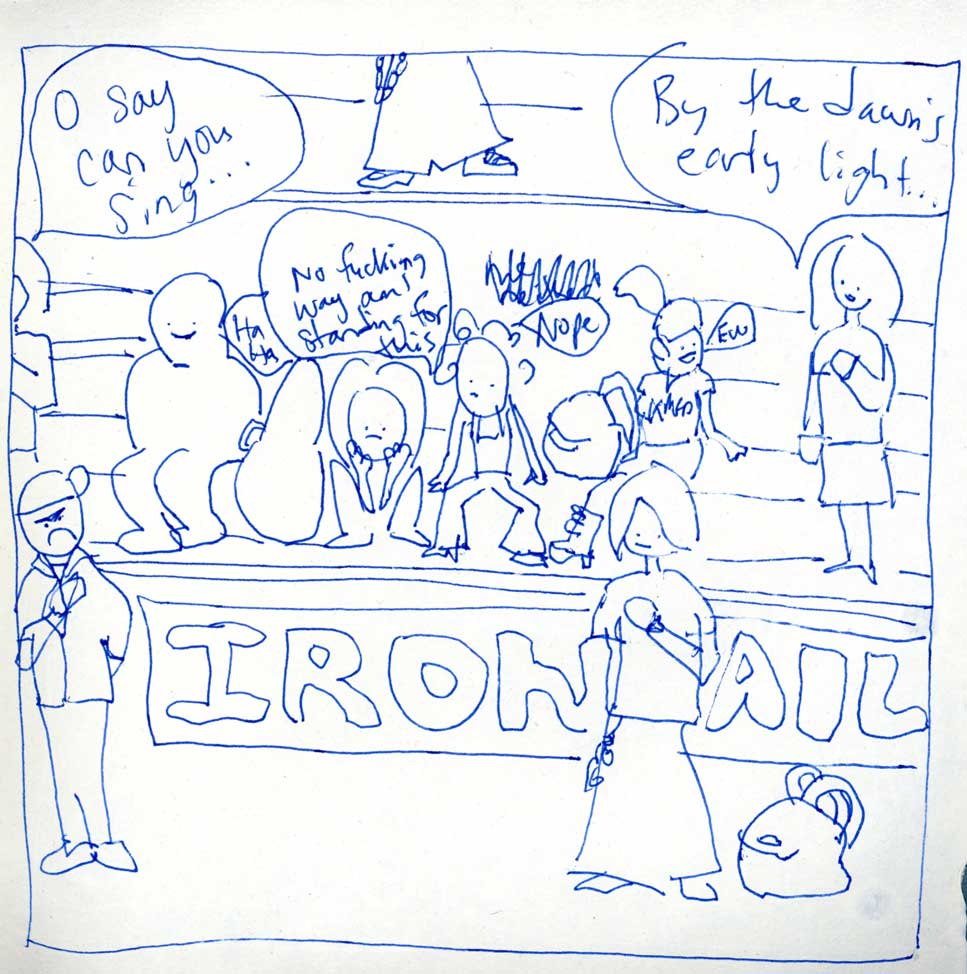 O say
can you
Sing...
By the dawn's
early light...
Ha
Ha
No fucking
way am I
standing for
this
Nope
Ew
IRON AIL